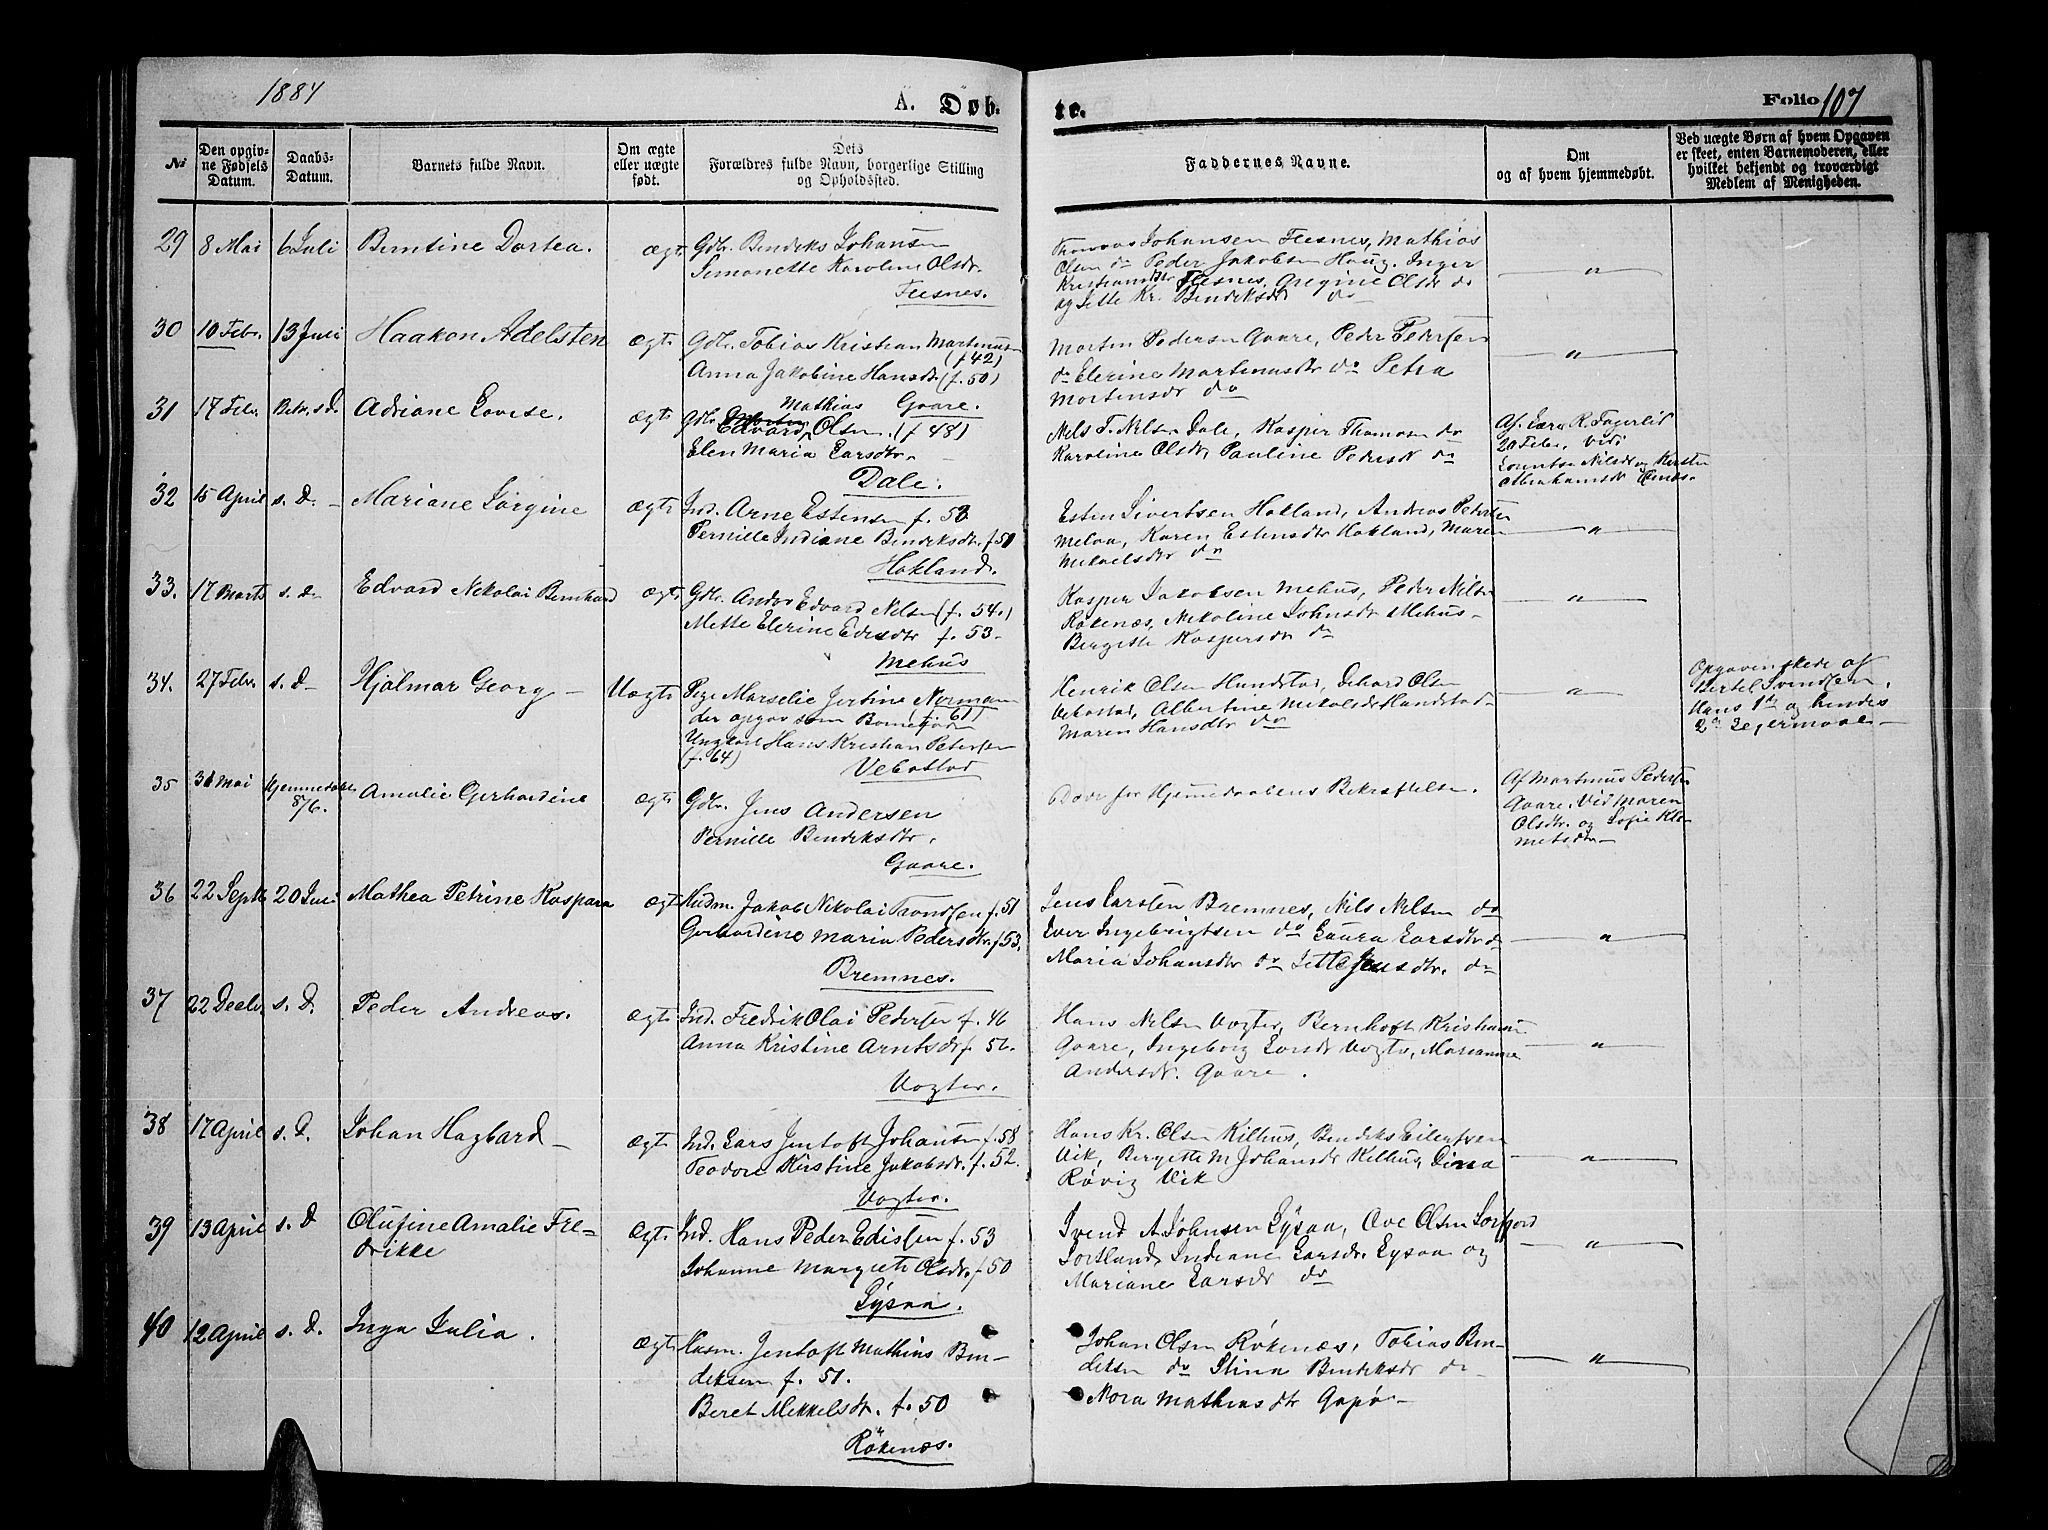 1884
A. Døb-
te.
Folio 107
No
Den opgiv-
ne Fødsels
Datum.
Daabs-
Datum.
Barnets fulde Navn.
Om ægte
eller uægte
født.
Dets
Forældres fulde Navn, borgerlige Stilling
og Opholdssted.
Faddernes Navne.
Om
og af hvem hjemmedøbt.
Ved uægte Børn af hvem Opgaven
er skeet, enten Barnemoderen, eller
hvilket bekjendt og troværdigt
Medlem af Menigheden.
29 8 Mai 6 Juli Berntine Dortea. ægte Gdbr. Bendiks Johansen
Simonette Karoline Olsdr.
Flesnes.
Thomas Johansen Flesnes, Mathias
Olsen do Peder Jakobsen Haug. Inger
Kristiansdtr Flesnes, Gregine Olsdr do
og Jette Kr. Bendiksdtr do
— " —
30 10 Febr. 13 Juli Haakon Adelsten ægte Gdbr. Tobias Kristian Martinusen
(f 42)
Anna Jakobine Hansdtr. (f. 50)
Gaare.
Morten Pedersen Gaare, Peder Pedersen
do Elerine Martinusdtr do Petra
Mortensdtr do
— " —
31 17 Febr. Bekr. s. D. Adriane Lovise. ægte Mathias
Gdbr. Edvard Olsen. (f 48)
Elen Maria Larsdtr. -
Dale.
Nels T. Nilsen Dale, Kasper Thomasen do
Karoline Olsdtr, Pauline Pedersdtr do
Af Lærer R. Fagerlid
20 Febr. Vidi
Nilsdtr og Kirsten
Abrahamsdtr
32 15 April s. D. - Mariane Jørgine ægte Ind. Arne Estensen f. 53
Pernille Indiane Bendiksdtr. f 50
Hokland.
Esten Sivertsen Hokland, Andreas Petersen
Melaa, Karen Estensdtr Hokland, Maren
Mikaelsdtr do
— " —
33. 17 Marts s. D. Edvard Nikolai Bernhard ægte Gdbr. Andor Edvard Nilsen (f. 54.)
Mette Elerine Edisdtr f. 53.
Mehus
Kasper Jakobsen Mehus, Peder Nilsen
Røkenæs, Nikoline Johnsdtr Mehus-
Bergitte Kaspersdtr do
— " —
34. 27 Febr. s. D- Hjalmar Georg - Uægte Pige Marselie Jertine Norman
f 61)
der opgav som Barnefader
Ungkarl Hans Kristian Petersen
(f. 64)
Vebostad
Henrik Olsen Hundstad, Olsen
Vebostad, Albertine Mikalsdtr Hundstad
Maren Hansdtr do
— " —
Opgaven skede af
Bertel Svendsen.
Hans 1ste og hendes
2det Lejermaal -
35 31 Mai Hjemmedøbt
8/6. Amalie Gerhardine ægte Gdbr. Jens Andersen
Pernille Bendiksdtr,
Gaare.
Døde før Hjemmedaabens Bekræftelse.
Af Martinus Pedersen
Gaare. Vid Maren
Olsdtr. og Sofie Kle-
metsdtr-
36 22 Septb. 20 Juli Mathea Petrine Kaspara ægte Husm. Jakob Nikolai Trondsen f. 51
Gerhardine Maria Pedersdtr. f 53.
Bremnes.
Jens Larsen Bremnes, Nils Nilsen do
Iver Ingebrigtsen do Laura Larsdtr do
Maria Johansdtr do Jette Jensdtr. do
— " —
37 22 Decbr. s. D. Peder Andreas. ægte Ind. Fredrik Olai Pedersen f. 46
Anna Kristine Arntsdtr f. 56.
Vogter.
Hans Nilsen Vogter, Bernhoft Kristiansen
Gaare, Ingeborg Larsdtr Vogter, Marianne
Andersdtr. Gaare.
— " —
38 17 April s. D. Johan Hagbard - ægte Ind. Lars Jentoft Johansen f. 58
Teodore Kirstine Jakobsdtr. f. 52.
Vogter.
Hans Kr. Olsen Kilhus, Bendiks Eilertsen
Vik, Bergitte M Johansdr Kilhus, Dina
Røvig Vik
— " —
39 13 April s. D Olufine Amalie Fre-
drikke ægte Ind. Hans Peder Edissen f. 53
Johanne Margrete Olsdtr. f 50
Lysaa.
Svend A. Johnsen Lysaa, Ove Olsen Sørfjord
Sortland, Indiane Larsdtr. Lysaa og
Mariane Larsdr do
— " —
40 12 April s. D. Inga Julia. ægte Husm. Jentoft Mathias Ben-
diksen f. 51.
Beret Mikkelsdtr. f. 50
Røkenæs.
Johan Olsen Røkenæs, Tobias Ben-
diksen do Stina Bendiksdtr do
Nora Mathiasdtr Gapø -
— " —